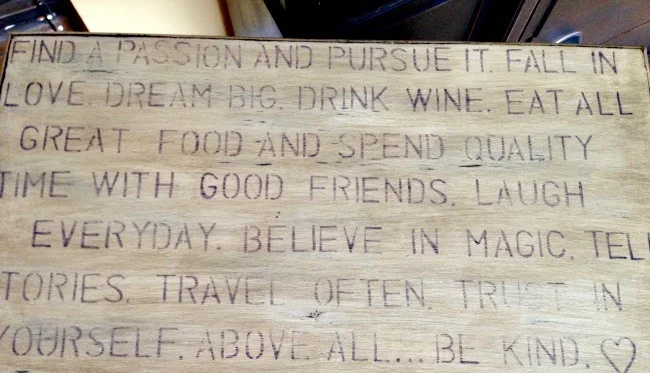 FIND A PASSION AND PURSUE IT. FALL IN
LOVE. DREAM BIG. DRINK WINE. EAT ALL
GREAT FOOD AND SPEND QUALITY
TIME WITH GOOD FRIENDS. LAUGH
EVERYDAY. BELIEVE IN MAGIC. TELL
TORIES. TRAVEL OFTEN. TRUST IN
YOURSELF. ABOVE ALL... BE KIND. ♡